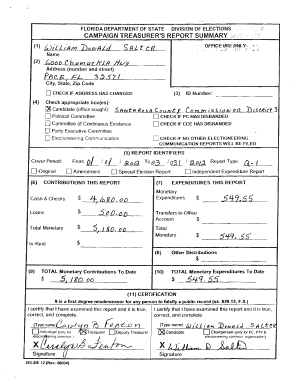 FLORIDA DEPARTMENT OF STATE DIVISION OF ELECTIONS
CAMPAIGN TREASURER'S REPORT SUMMARY
(1) William Donald Salter
Name
OFFICE USE ONLY
(2) 6000 Chumuckla Hwy
Address (number and street)
PACE, FL 32571
City, State, Zip Code
CHECK IF ADDRESS HAS CHANGED
(3) ID Number:
(4) Check appropriate box(es):
X Candidate (office sought) Santa Rosa County Commissioner District 3
Political Committee
CHECK IF PC HAS DISBANDED
Committee of Continuous Existence
CHECK IF CCE HAS DISBANDED
Party Executive Committee
Electioneering Communication
CHECK IF NO OTHER ELECTIONEERING
COMMUNICATION REPORTS WILL BE FILED
(5) REPORT IDENTIFIERS
Cover Period: From 01 / 1 / 2012 To 03 / 031 / 2012 Report Type: Q-1
Original Amendment Special Election Report Independent Expenditure Report
(6) CONTRIBUTIONS THIS REPORT
(7) EXPENDITURES THIS REPORT
Cash & Checks $ 4,680.00
Monetary
Expenditures $ 549.55
Loans $ 500.00
Transfers to Office
Account $
Total Monetary $ 5,180.00
Total
Monetary $ 549.55
In-Kind $
(8) Other Distributions
$
(9) TOTAL Monetary Contributions To Date
$ 5,180.00
(10) TOTAL Monetary Expenditures To Date
$ 549.55
(11) CERTIFICATION
It is a first degree misdemeanor for any person to falsify a public record (ss. 839.13, F.S.)
I certify that I have examined this report and it is true,
correct, and complete.
I certify that I have examined this report and it is true,
correct, and complete.
(Type name) Carolyn B Fenton
Individual (only for
Treasurer
Deputy Treasurer
(Type name) William Donald SALTER
Candidate
Chairperson (only for PC, PTY &
X Carolyn B. Fenton
Signature
X William D Salter
Signature
DS-DE 12 (Rev. 08/04)